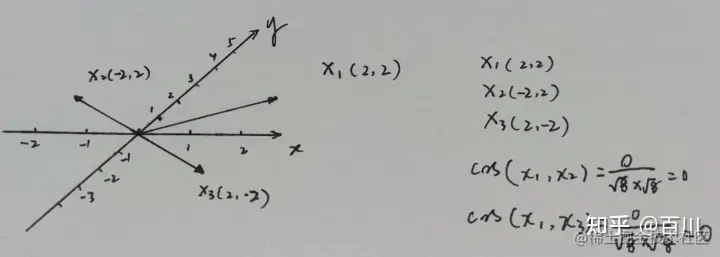 y
5
4
3
2
1
X₂(-2,2)
X₁(2,2)
-2 -1 1 2 x
-1
-2
-3
X₃(2,-2)
X₁(2,2)
X₂(-2,2)
X₃(2,-2)
cos(x₁,x₂)=0/√8×√8=0
cos(x₁,x₃)=0/√8×√8=0
知乎 @百川
@稀土掘金技术社区